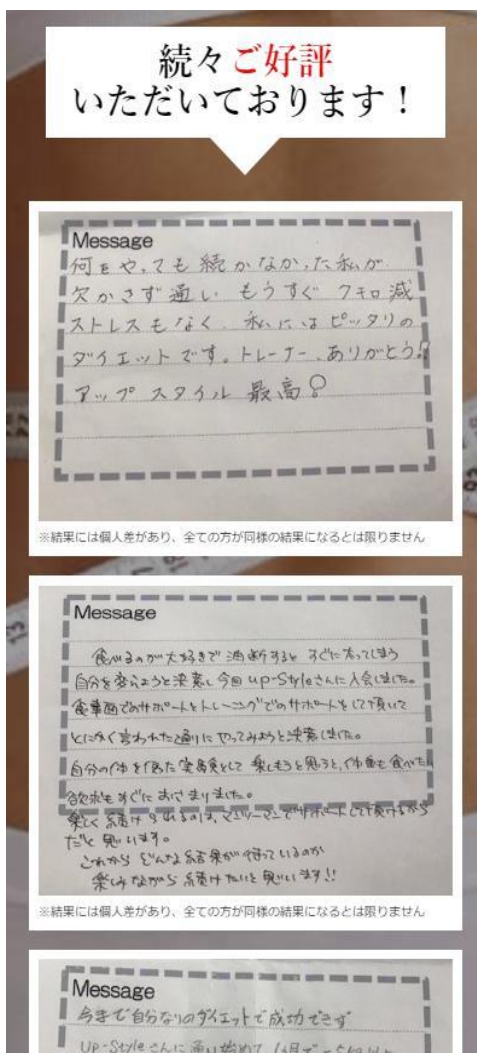 続々ご好評
いただいております！
Message
何をやっても続かなかった私が
欠かさず通い もうすぐ 7キロ減
ストレスもなく、私にはピッタリの
ダイエットです。トレーナー、ありがとう!!
アップスタイル 最高
※結果には個人差があり、全ての方が同様の結果になるとは限りません
Message
食べるのが大好きで油断するとすぐに太ってしまう
自分を変えようと決意し今回up-Styleさんに入会しました。
食事面でのサポートとトレーニングでのサポートをして頂いて
とにかく言われた通りにやってみようと決意しました。
自分の体を使った実験として楽しもうと思うと、体重も食べたい
欲求もすぐにおさまりました。
楽しく続けられるのは、マンツーマンでサポートして頂けるから
だと思います。
これからどんな結果が待っているのか
楽しみながら続けたいと思います!!
※結果には個人差があり、全ての方が同様の結果になるとは限りません
Message
今まで自分なりのダイエットで成功できず
up-Styleさんに通い始めて